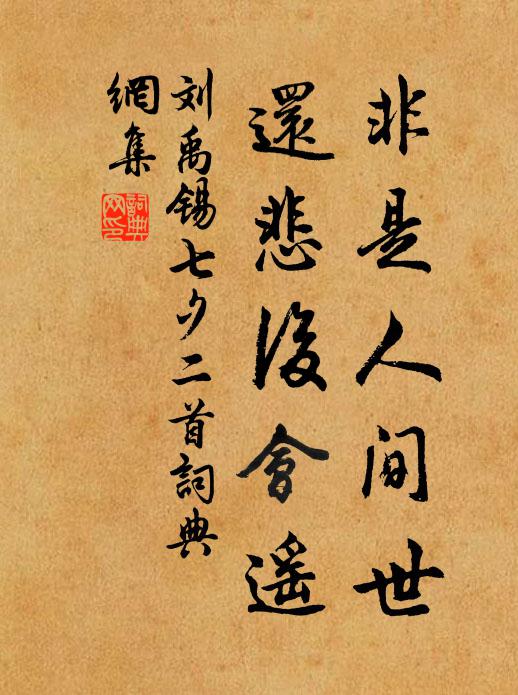 非是人间世
還悲後會遥
刘禹锡七夕二首詞典
網集
詞典網印